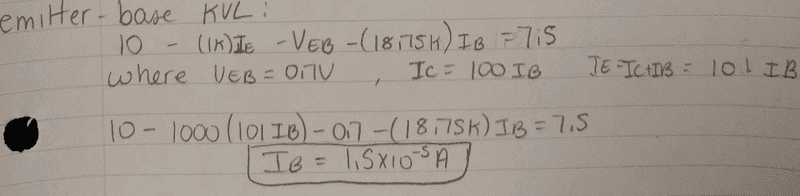 emitter-base KVL:
10 - (1K)IE - VEB - (18.75K) IB = 7.5
where VEB = 0.7V , IC = 100 IB IE=IC+IB = 101 IB
10 - 1000 (101 IB) - 0.7 - (18.75K) IB = 7.5
IB = 1.5x10^-5 A